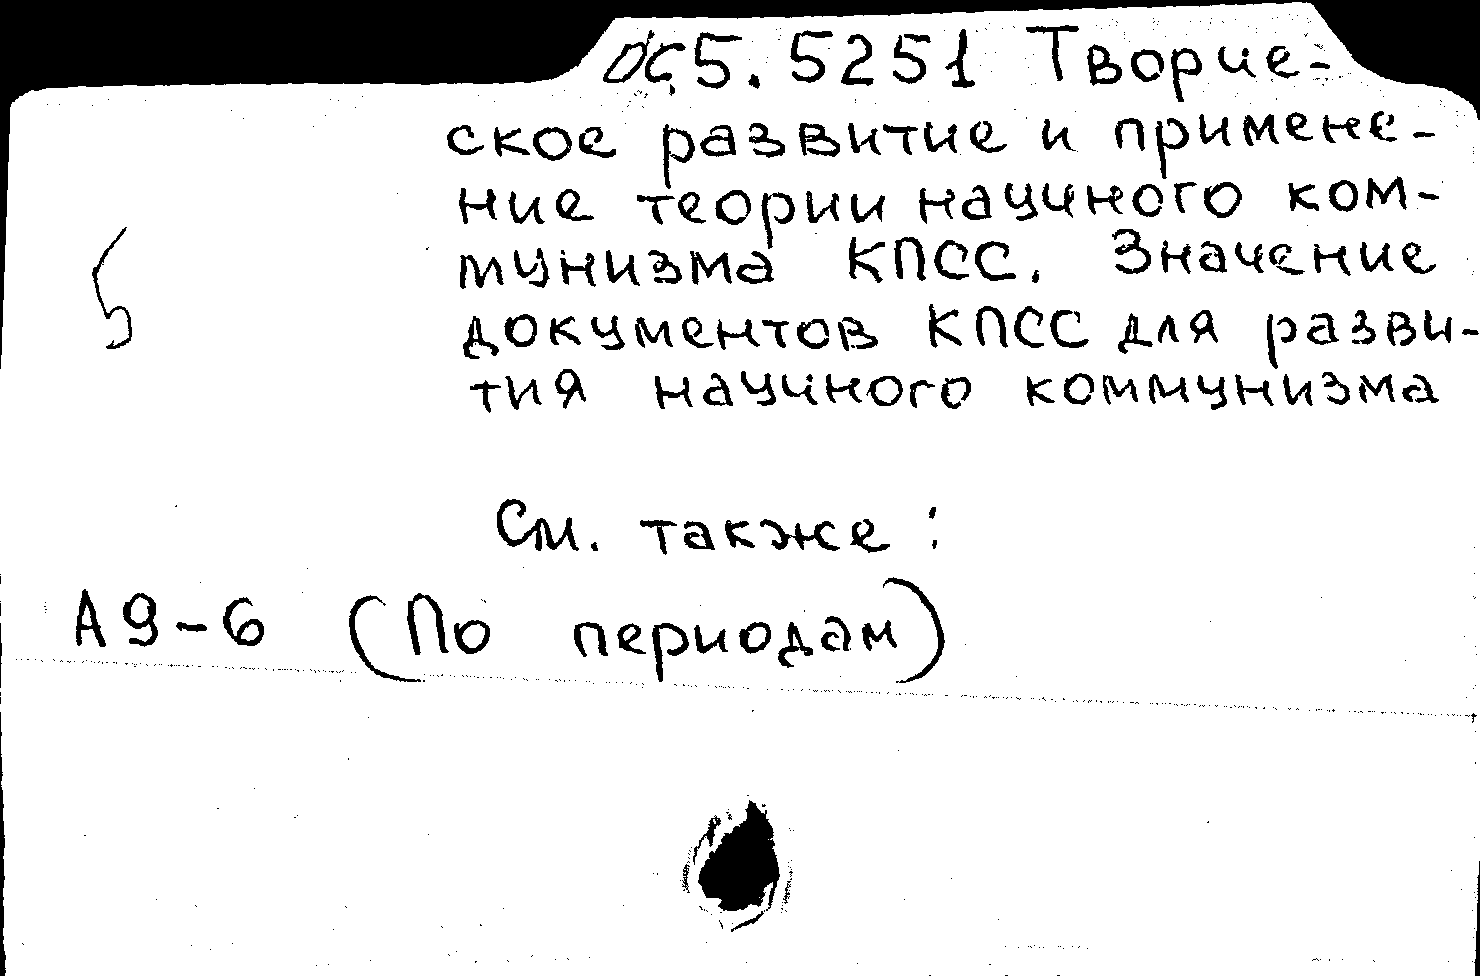 05.5251 Творче-
ское развитие и примене-
ние теории научного ком-
мунизма КПСС. Значение
документов КПСС для разви-
тия научного коммунизма
См. также:
А9-6 (По периодам)